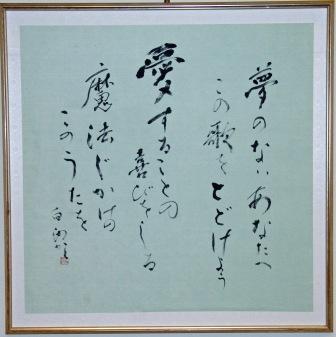 夢のないあなたへ
この歌をとどけよう
愛することの
喜びをしる
魔法じかけの
このうたを